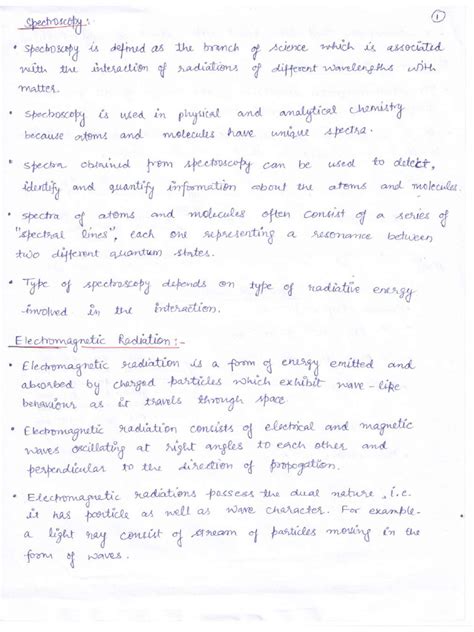 Spectroscopy :-
1
• Spectroscopy is defined as the branch of science which is associated
with the interaction of radiations of different wavelengths with
matter.
• Spectroscopy is used in physical and analytical chemistry
because atoms and molecules have unique spectra.
• Spectra obtained from spectroscopy can be used to detect,
identify and quantify information about the atoms and molecules.
• Spectra of atoms and molecules often consist of a series of
"spectral lines", each one representing a resonance between
two different quantum states.
• Type of spectroscopy depends on type of radiative energy
involved in the interaction.
Electromagnetic Radiation :-
• Electromagnetic radiation is a form of energy emitted and
absorbed by charged particles which exhibit wave-like
behaviour as it travels through space
• Electromagnetic radiation consists of electrical and magnetic
waves oscillating at right angles to each other and
perpendicular to the direction of propogation.
• Electromagnetic radiations possess the dual nature, i.e.
it has particle as well as wave character. For example-
a light ray consist of stream of particles moving in the
form of waves.